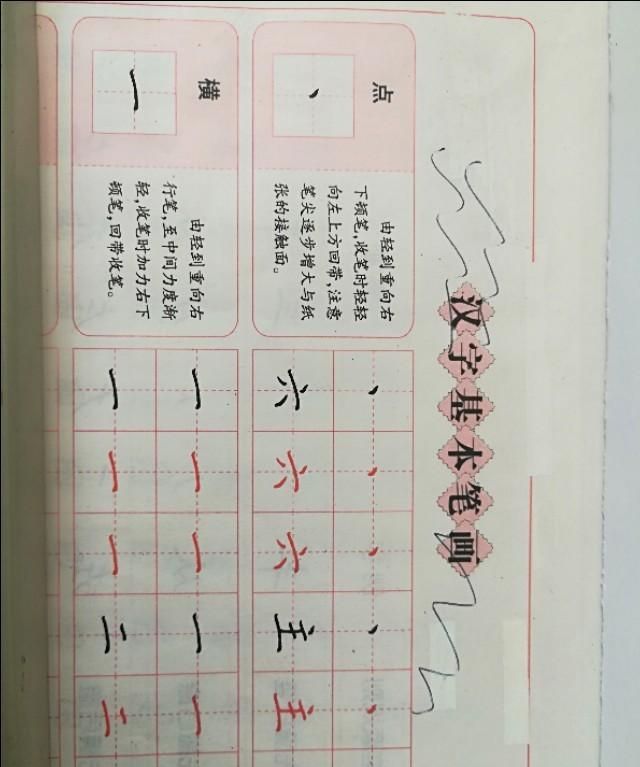 汉字基本笔画
点
、
由轻到重向右
下顿笔,收笔时轻轻
向左上方回带,注意
笔尖逐步增大与纸
张的接触面。
、 、 、 、 、
六 六 六 主 主
横
一
由轻到重向右
行笔,至中间力度渐
轻,收笔时加力右下
顿笔,回带收笔。
一 一 一 一 一
一 一 一 二 二